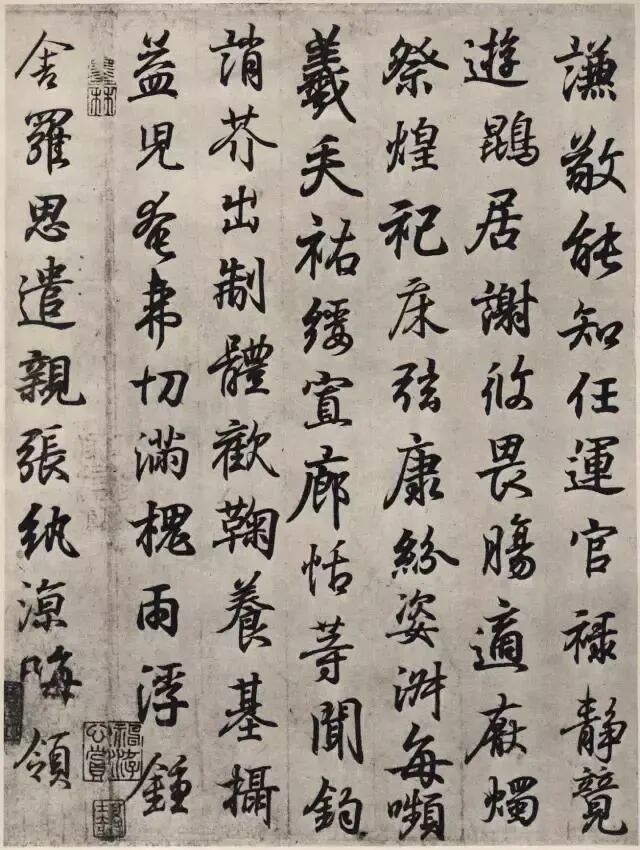 謙敬能知任運官禄静竟
遊鵾居謝攸畏腸適厭燭
祭煌祀床弦康紛姿淵每嚬
羲矢祐綏寔廊恬等聞鈞
誚芥出制體歡鞠養基攝
益兒奄弗切滿槐雨浮鍾
舍羅思遣親張紈涼晦領